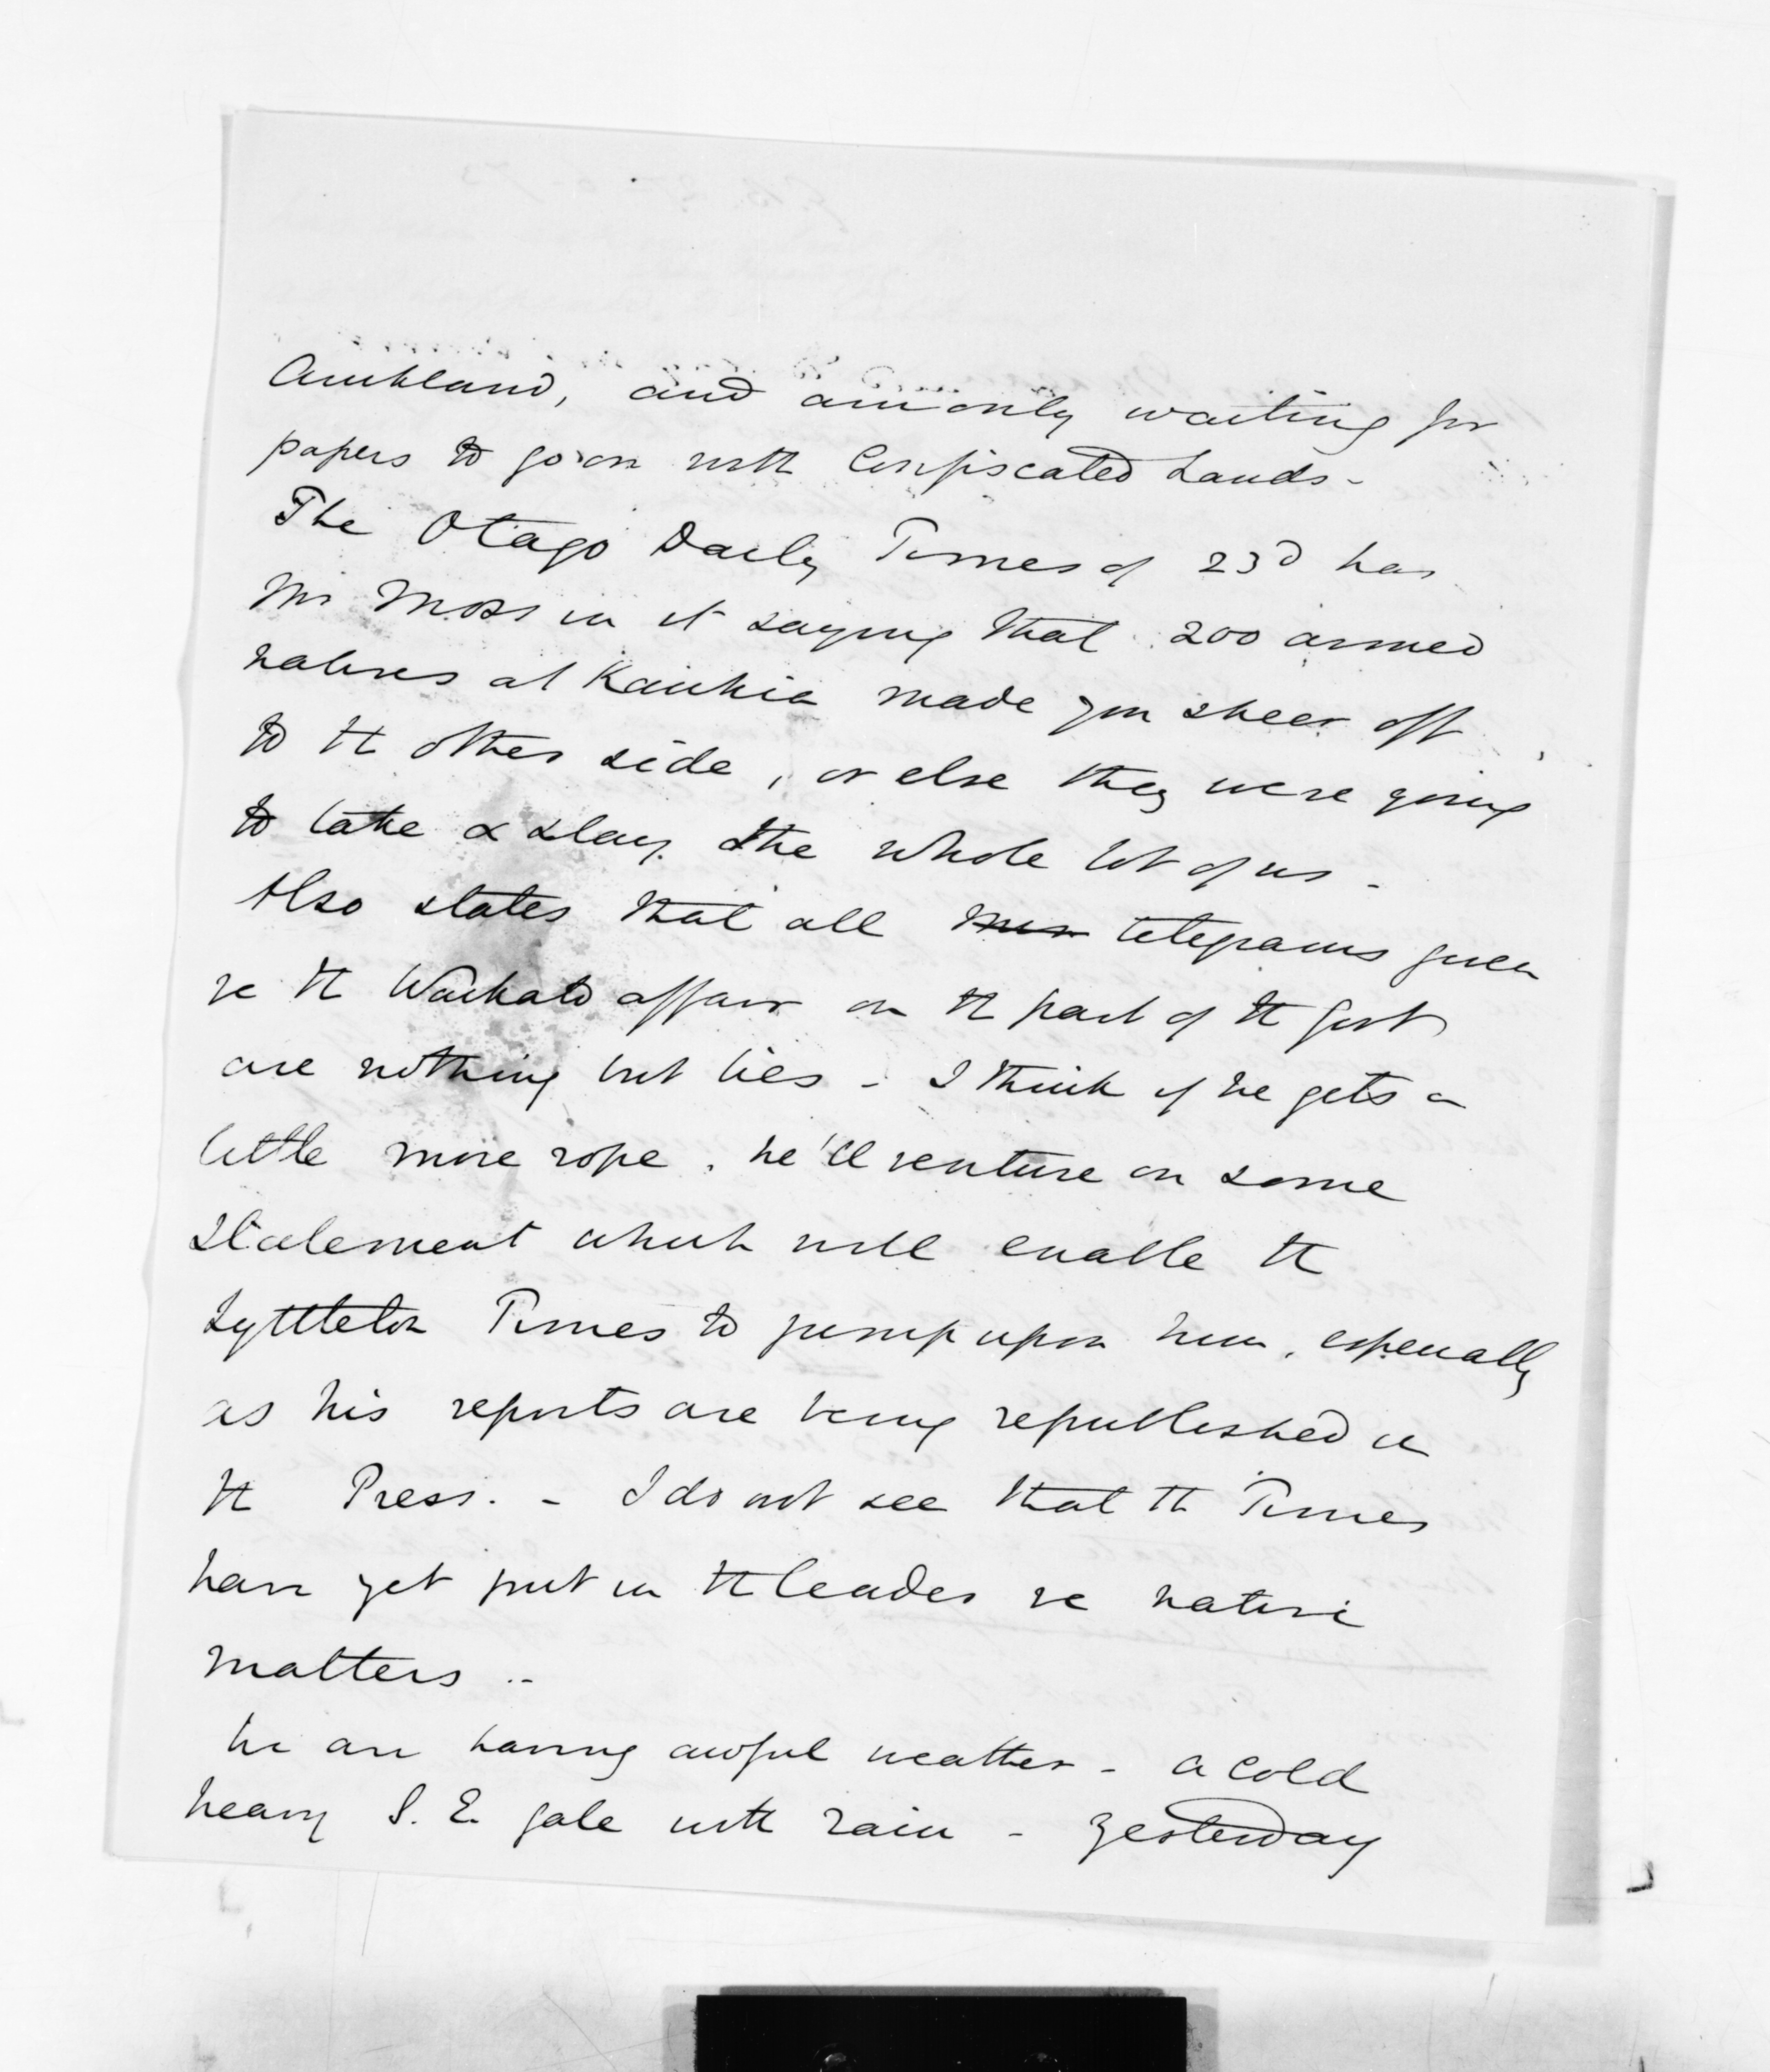 Auckland, and am only waiting for
papers to go on with Confiscated Lands -
The Otago Daily Times of 23d has
Mr Moss in it saying that 200 armed
natives at Kawhia made you sheer off
to tt other side, or else they were going
to take & slay the whole lot of us -
Also states that all telegrams given
re tt Waikato affair on tt part of tt Govt
are nothing but lies - I think if he gets a
little more rope, he'll venture on some
statement which will enable tt
Lyttleton Times to jump upon him, especially
as his reports are being republished in
tt Press. - I do not see that tt Times
have yet put in tt leader re native
matters -
We are having awful weather - a cold
heavy S. E. gale with rain - Yesterday